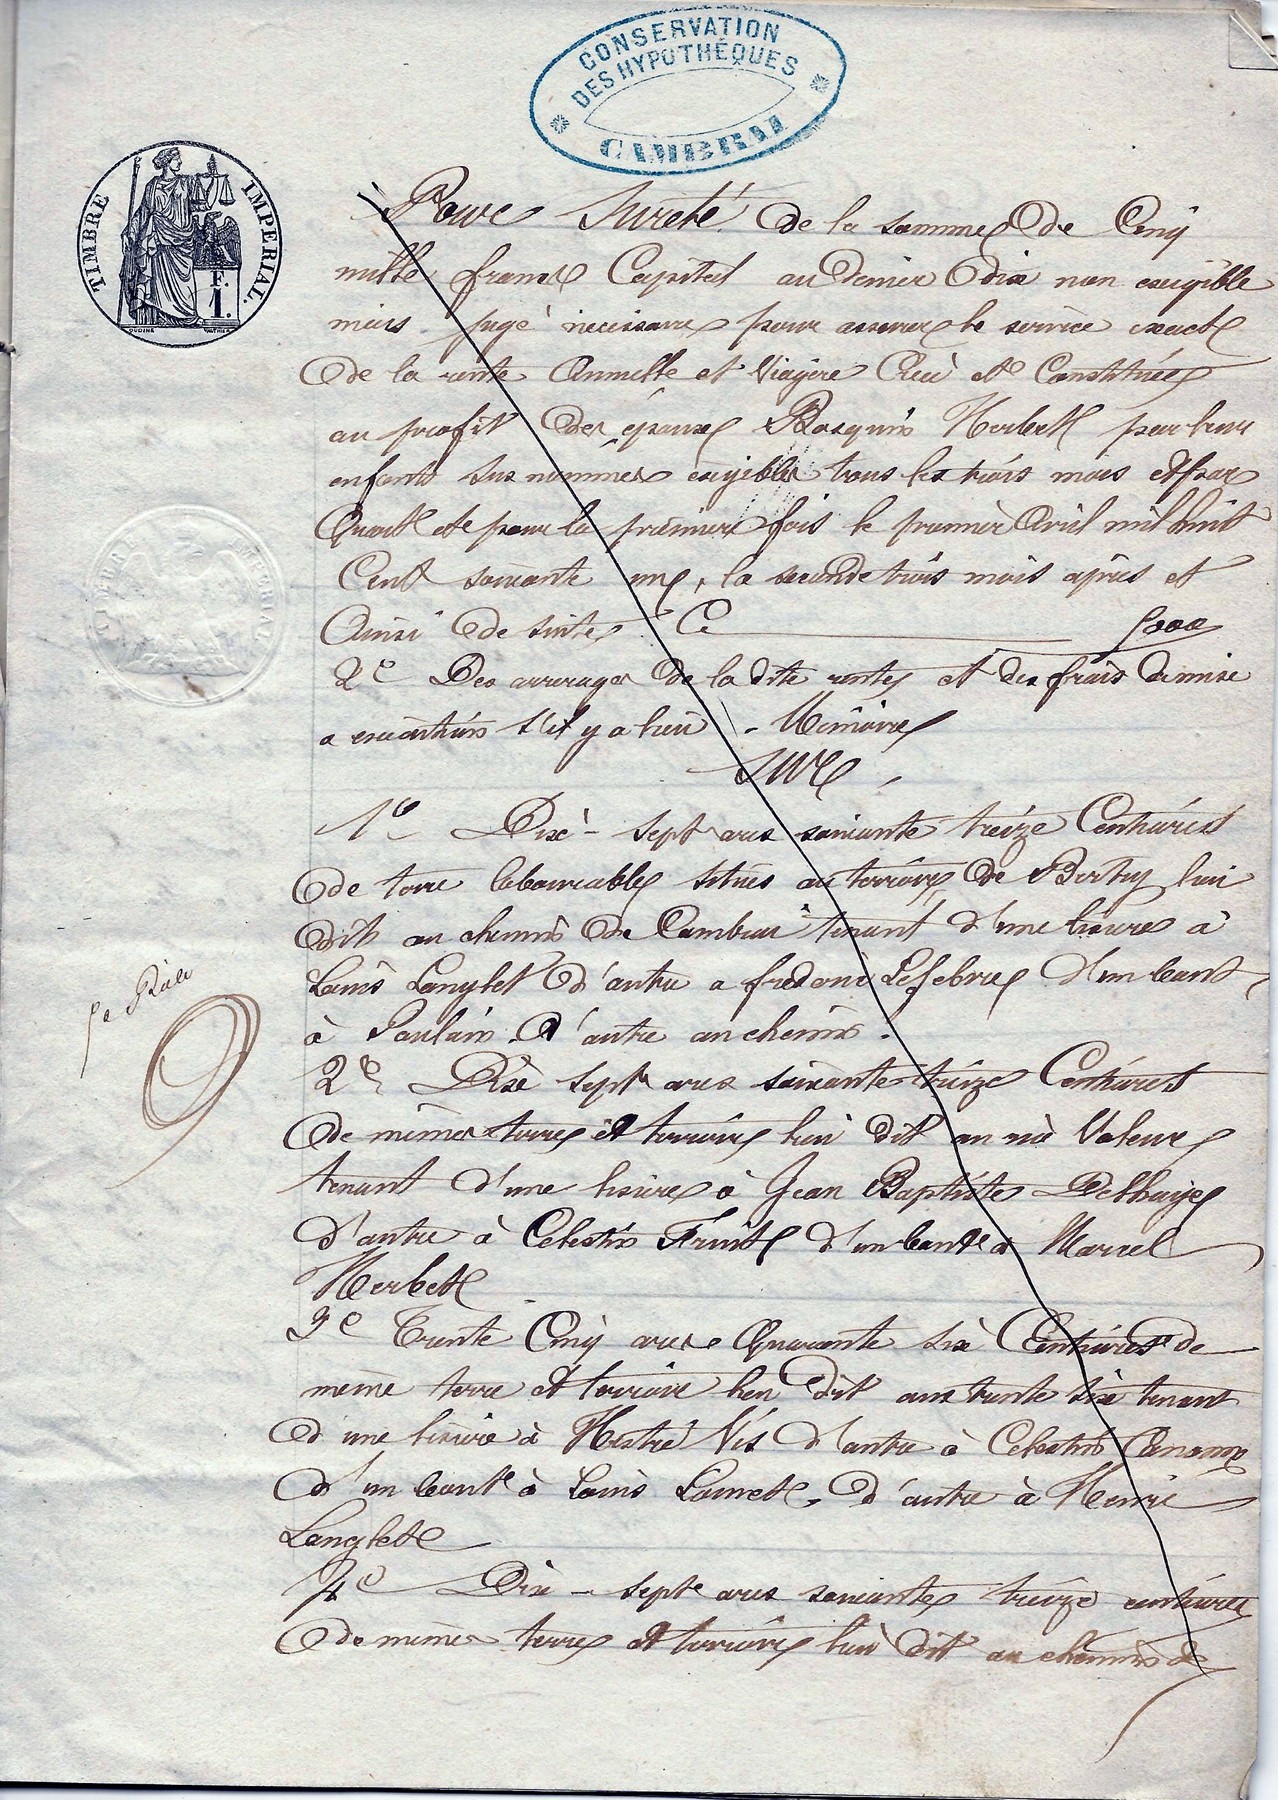 CONSERVATION
DES HYPOTHÉQUES
CAMBRAI
TIMBRE IMPERIAL.
F.
1.
Pour Sureté de la somme De Cinq
mille francs Capital au Denier dix non exigible
mais jugé necessaire pour assurer le service exact
De la rente Annuelle et Viagère Créé et Constituée
au profit Des époux Basquin Herbet par leur
enfants sus nommés exigible tous les trois mois et par
Quart et pour la premiere fois le premier Avril mil huit
Cent soixante un, la seconde trois mois après et
Ainsi De suite. Ce 5000
2e Des arrerages De la dite rente et des frais de mise
a exécution s'il y a lieu - Mémoire
SUR
1e Dix-sept ares soixante treize Centiares
De terre labourable situés au terroire De Bertry lieu
dit au chemin De Cambrai tenant d'une lisière à
Louis Langlet d'autre a Lefebvre d'un bout
à Poulain d'autre au chemin.
2e Dix sept ares soixante treize Centiares
De même terre et terroire lieu dit
tenant d'une lisière à Jean Baptiste Delhaye
d'autre à Celestin Fruit d'un bout a Marcel
Herbet
3e Trente Cinq ares Quarante six Centiares de
même terre et terroire lieu dit aux trente six tenant
d'une lisière à d'autre à Celestin
d'un bout à Louis Lamet, d'autre à Henri
Langlet
4e Dix-sept ares soixante treize centiares
De même terre et terroire lieu dit au chemin de
5e Rôle